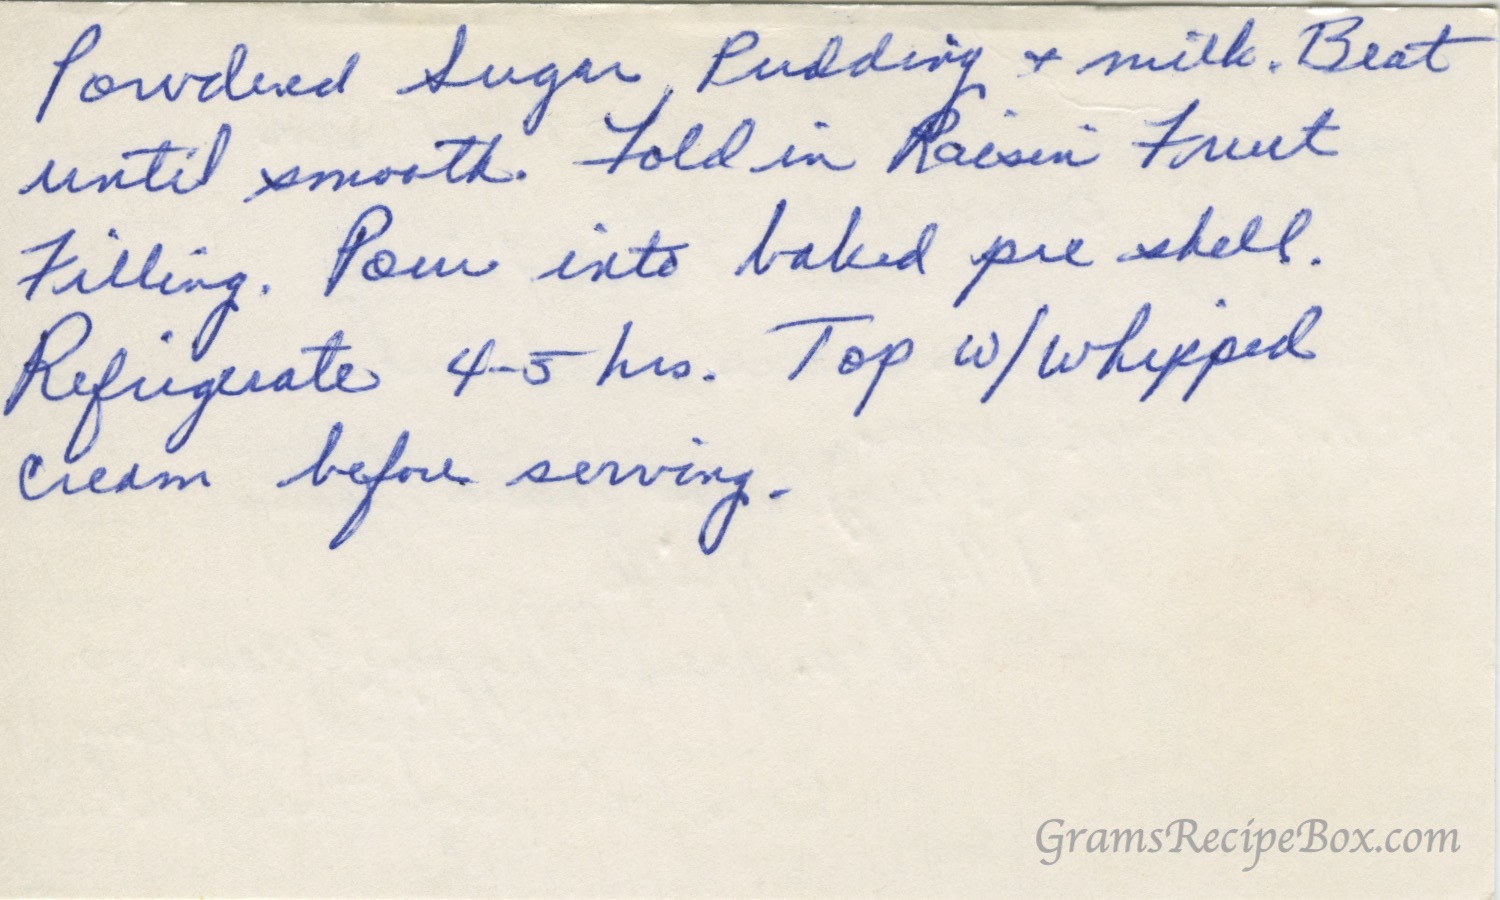 Powdered Sugar, Pudding + milk. Beat
until smooth. Fold in Raisin Fruit
Filling. Pour into baked pie shell.
Refrigerate 4-5 hrs. Top w/whipped
cream before serving.
GramsRecipeBox.com